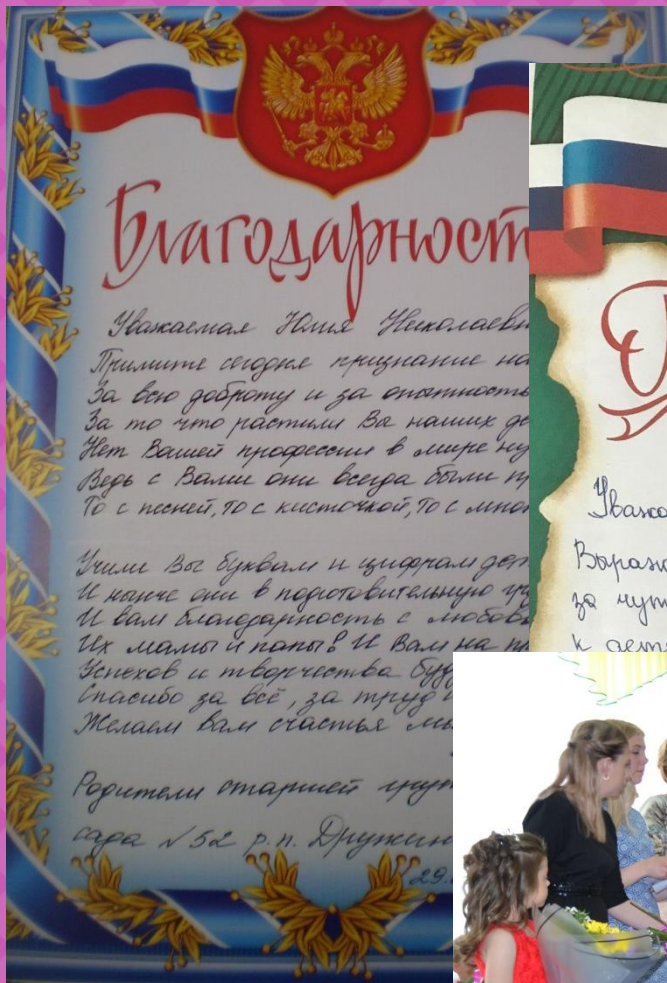 Благодарност
Уважаемая Юлия Николаевн
Примите сегодня признание на
За всю доброту и за опытность
За то что растили Вы наших де
Нет Вашей профессии в мире ну
Ведь с Вами они всегда были п
То с песней, то с кисточкой, то с
Учили Вы буквам и цифрам дет
И нынче они в подготовительную гр
И вам благодарность с любовь
Их мамы и папы! И Вам на п
Успехов и творчества буд
Спасибо за всё, за труд
Желаем вам счастья мы
Родители старшей груп
сада №52 р.п. Дружинин
29.
Уважа
Выража
за чут
к дет